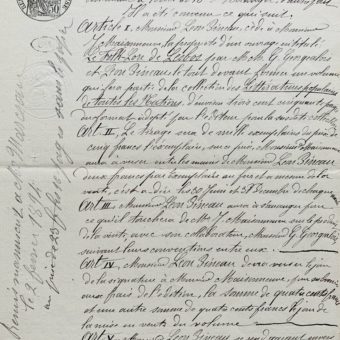 Il a été convenu ce qui suit
Article I, Monsieur Léon Pineau, cède à Monsieur
J. Maisonneuve la propriété d'un ouvrage intitulé
Le Folk-Lore de Lesbos par M. M. G. Georgeakis
et Léon Pineau le tout devant former un volume
qui fera partie de la collection des Littératures populaires
de toutes les Nations, d'environ trois cent cinquante pages
du format adopté par l'éditeur pour la susdite collection
Art II. Le tirage sera de mille exemplaires du prix de
cinq francs l'exemplaire, sur ce prix, Monsieur Maisonneuve
aura à verser entre les mains de Monsieur Léon Pineau
deux francs par exemplaire au fur et à mesure de la
vente, c'est à dire les 30 Juin et 31 Décembre de chaque
Art III. Monsieur Léon Pineau aura à s'arranger pour
ce qu'il touchera de Mr J. Maisonneuve sur le produit
de la vente, avec son collaborateur, Monsieur G. Georgeakis
suivant leurs conventions entre eux.
Art IV. Monsieur Léon Pineau devra verser le jour
de la signature à Monsieur Maisonneuve,
aux frais de l'édition, la somme de quatre cents francs
et une autre somme de quatre cents francs le jour de
la mise en vente du volume
Art V. Monsieur Léon Pineau
le 2 février 1894
au prix de 25